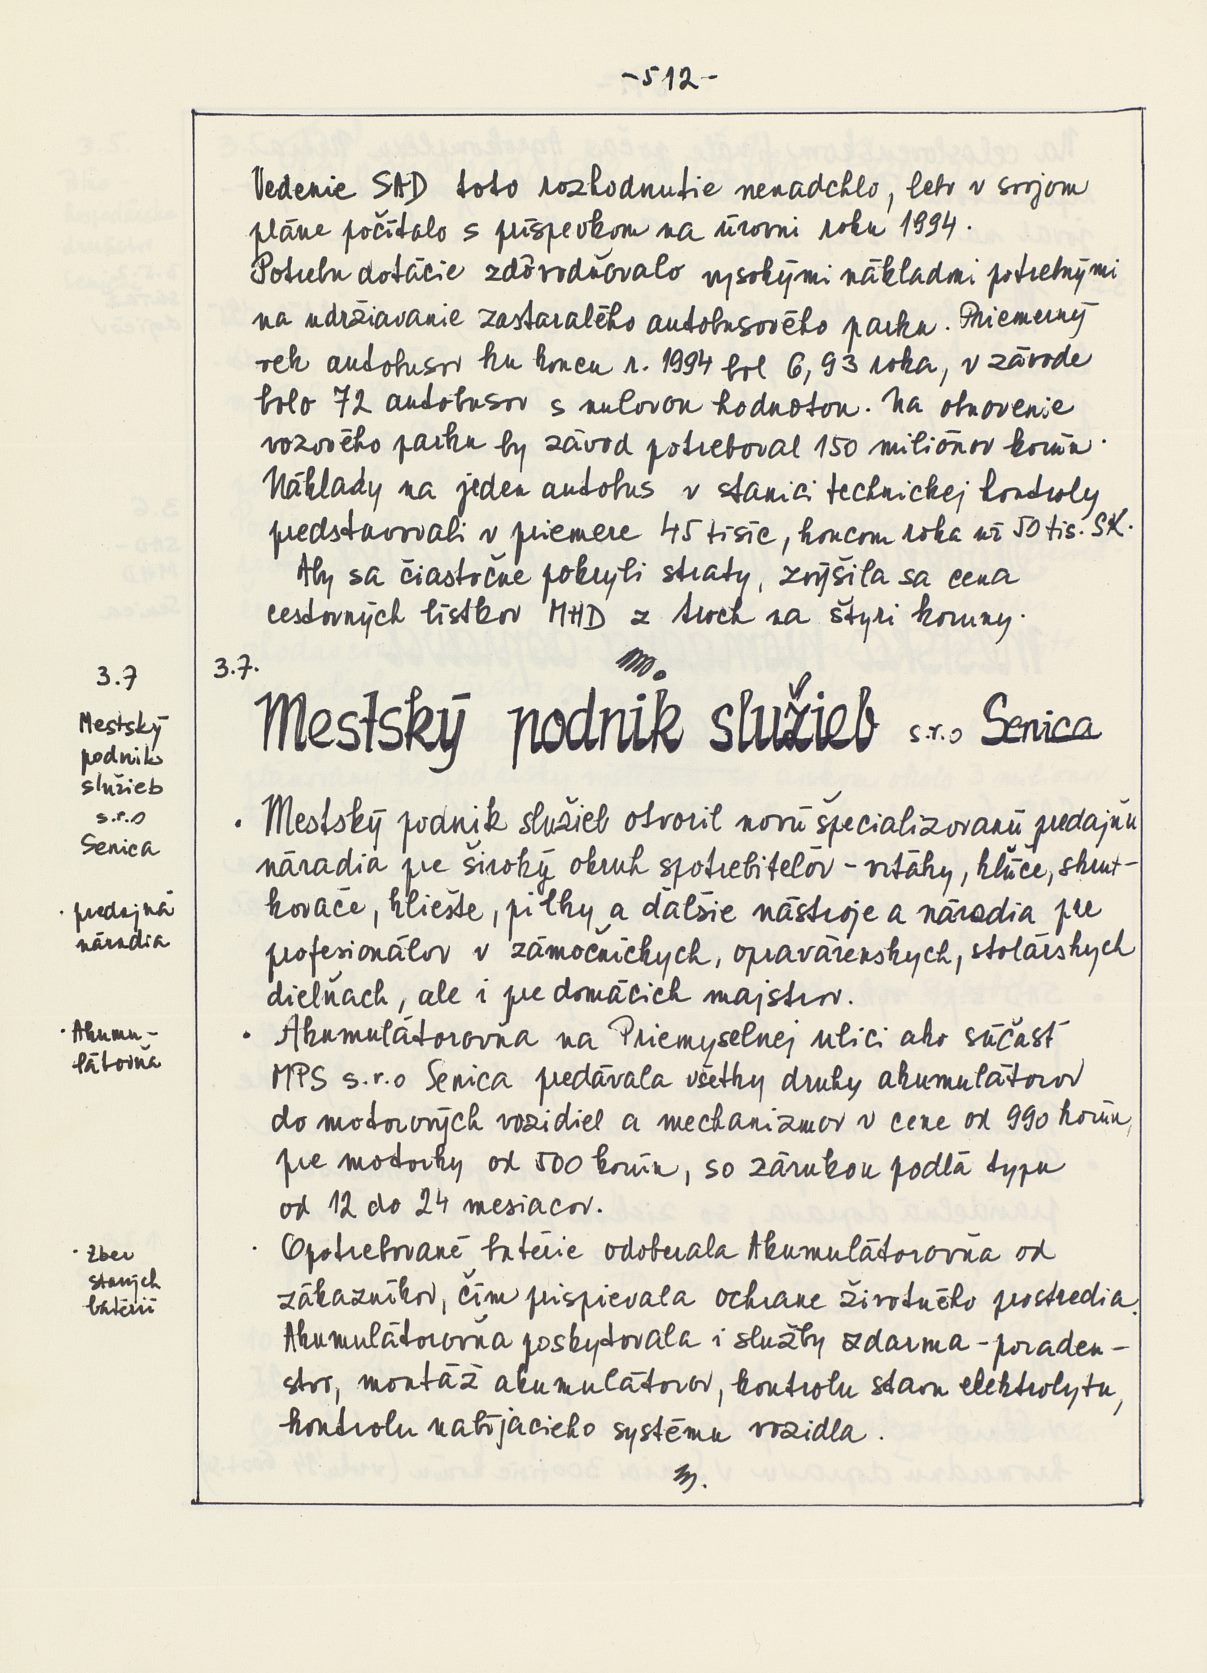 -512-
Vedenie SAD toto rozhodnutie nenadchlo, lebo v svojom
pláne počítalo s príspevkom na úrovni roku 1994.
Potrebu dotácie zdôvodňovalo vysokými nákladmi potrebnými
na udržiavanie zastaralého autobusového parku. Priemerný
vek autobusov ku koncu r. 1994 bol 6,93 roka, v závode
bolo 72 autobusov s nulovou hodnotou. Na obnovenie
vozového parku by závod potreboval 150 miliónov korún.
Náklady na jeden autobus v stanici technickej kontroly
predstavovali v priemere 45 tisíc, koncom roka už 50 tis. SK.
Aby sa čiastočne pokryli straty, zvýšila sa cena
cestovných lístkov MHD z troch na štyri koruny.
3.7
Mestský
podnik
služieb
s.r.o
Senica
3.7.
Mestský podnik služieb s.r.o Senica
· Mestský podnik služieb otvoril novú špecializovanú predajňu
náradia pre široký okruh spotrebiteľov - vrtáky, kľúče, skrut-
kovače, kliešte, pílky a ďalšie nástroje a náradia pre
profesionálov v zámočníckych, opravárenskych, stolárskych
dielňach, ale i pre domácich majstrov.
· predajňa
náradia
· Akumulátorovňa na Priemyselnej ulici ako súčasť
MPS s.r.o Senica predávala všetky druhy akumulátorov
do motorových vozidiel a mechanizmov v cene od 990 korún,
pre motorky od 500 korún, so zárukou podľa typu
od 12 do 24 mesiacov.
· Akumu-
látovňa
· Opotrebované batérie odoberala Akumulátorovňa od
zákazníkov, čím prispievala ochrane životného prostredia.
Akumulátorovňa poskytovala i služby zdarma - poraden-
stvo, montáž akumulátorov, kontrolu stavu elektrolytu,
kontrolu nabíjacieho systému vozidla.
· Zber
starých
batérií